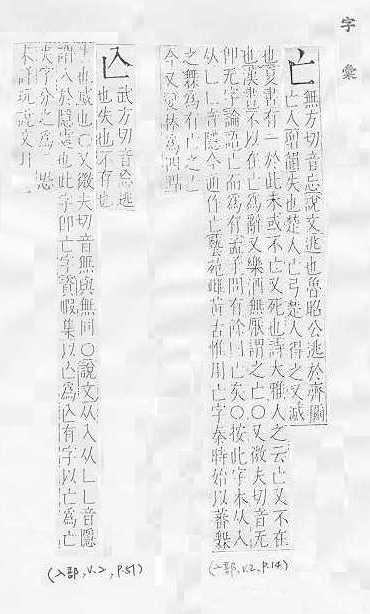 字彙
亡
無方切音忘說文逃也魯昭公逃於齊
亡人 失也楚人亡弓楚人得之又滅
也夏書有一於此未或不亡又死也詩大雅人之云亡又不在
也漢書不以在亡為辭又樂酒無厭謂之亡○又微夫切音无
卽无字論語亡而為有孟子問有餘曰亡矣○按此字本从入
从乚乚音隱今通作亡藝苑雌黃古惟用亡字秦時始以蕃橆
之橆為有亡之亡
今又變林為四點
(亠部, V.2, P.14)
亾
武方切音忘逃
也失也不存也
也滅也○又微夫切音無與無同○說文从入从乚乚音隱
謂入於隱處也此字卽亡字資暇集以亾為亾有字以亡為亡
失字分之為二恐
未詳玩說文
(入部, V.2, P.51)